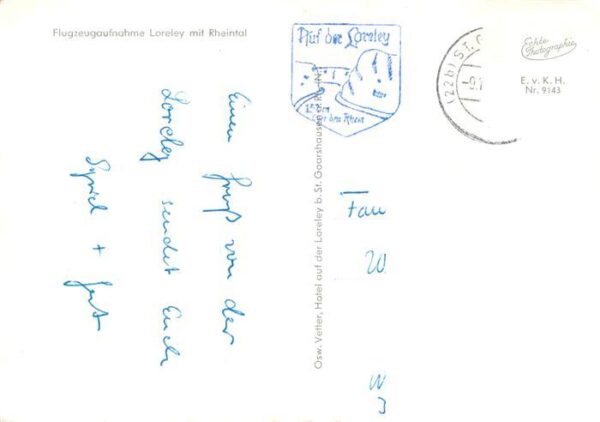 Flugzeugaufnahme Loreley mit Rheintal
Auf der Loreley
über dem Rhein
(22b) ST. G
-9.
Echte
Photographie
E. v. K. H.
Nr. 9143
Einen Gruß von der
Loreley sendet Euch
+
Osw. Vetter, Hotel auf der Loreley b. St. Goarshausen a. Rhein